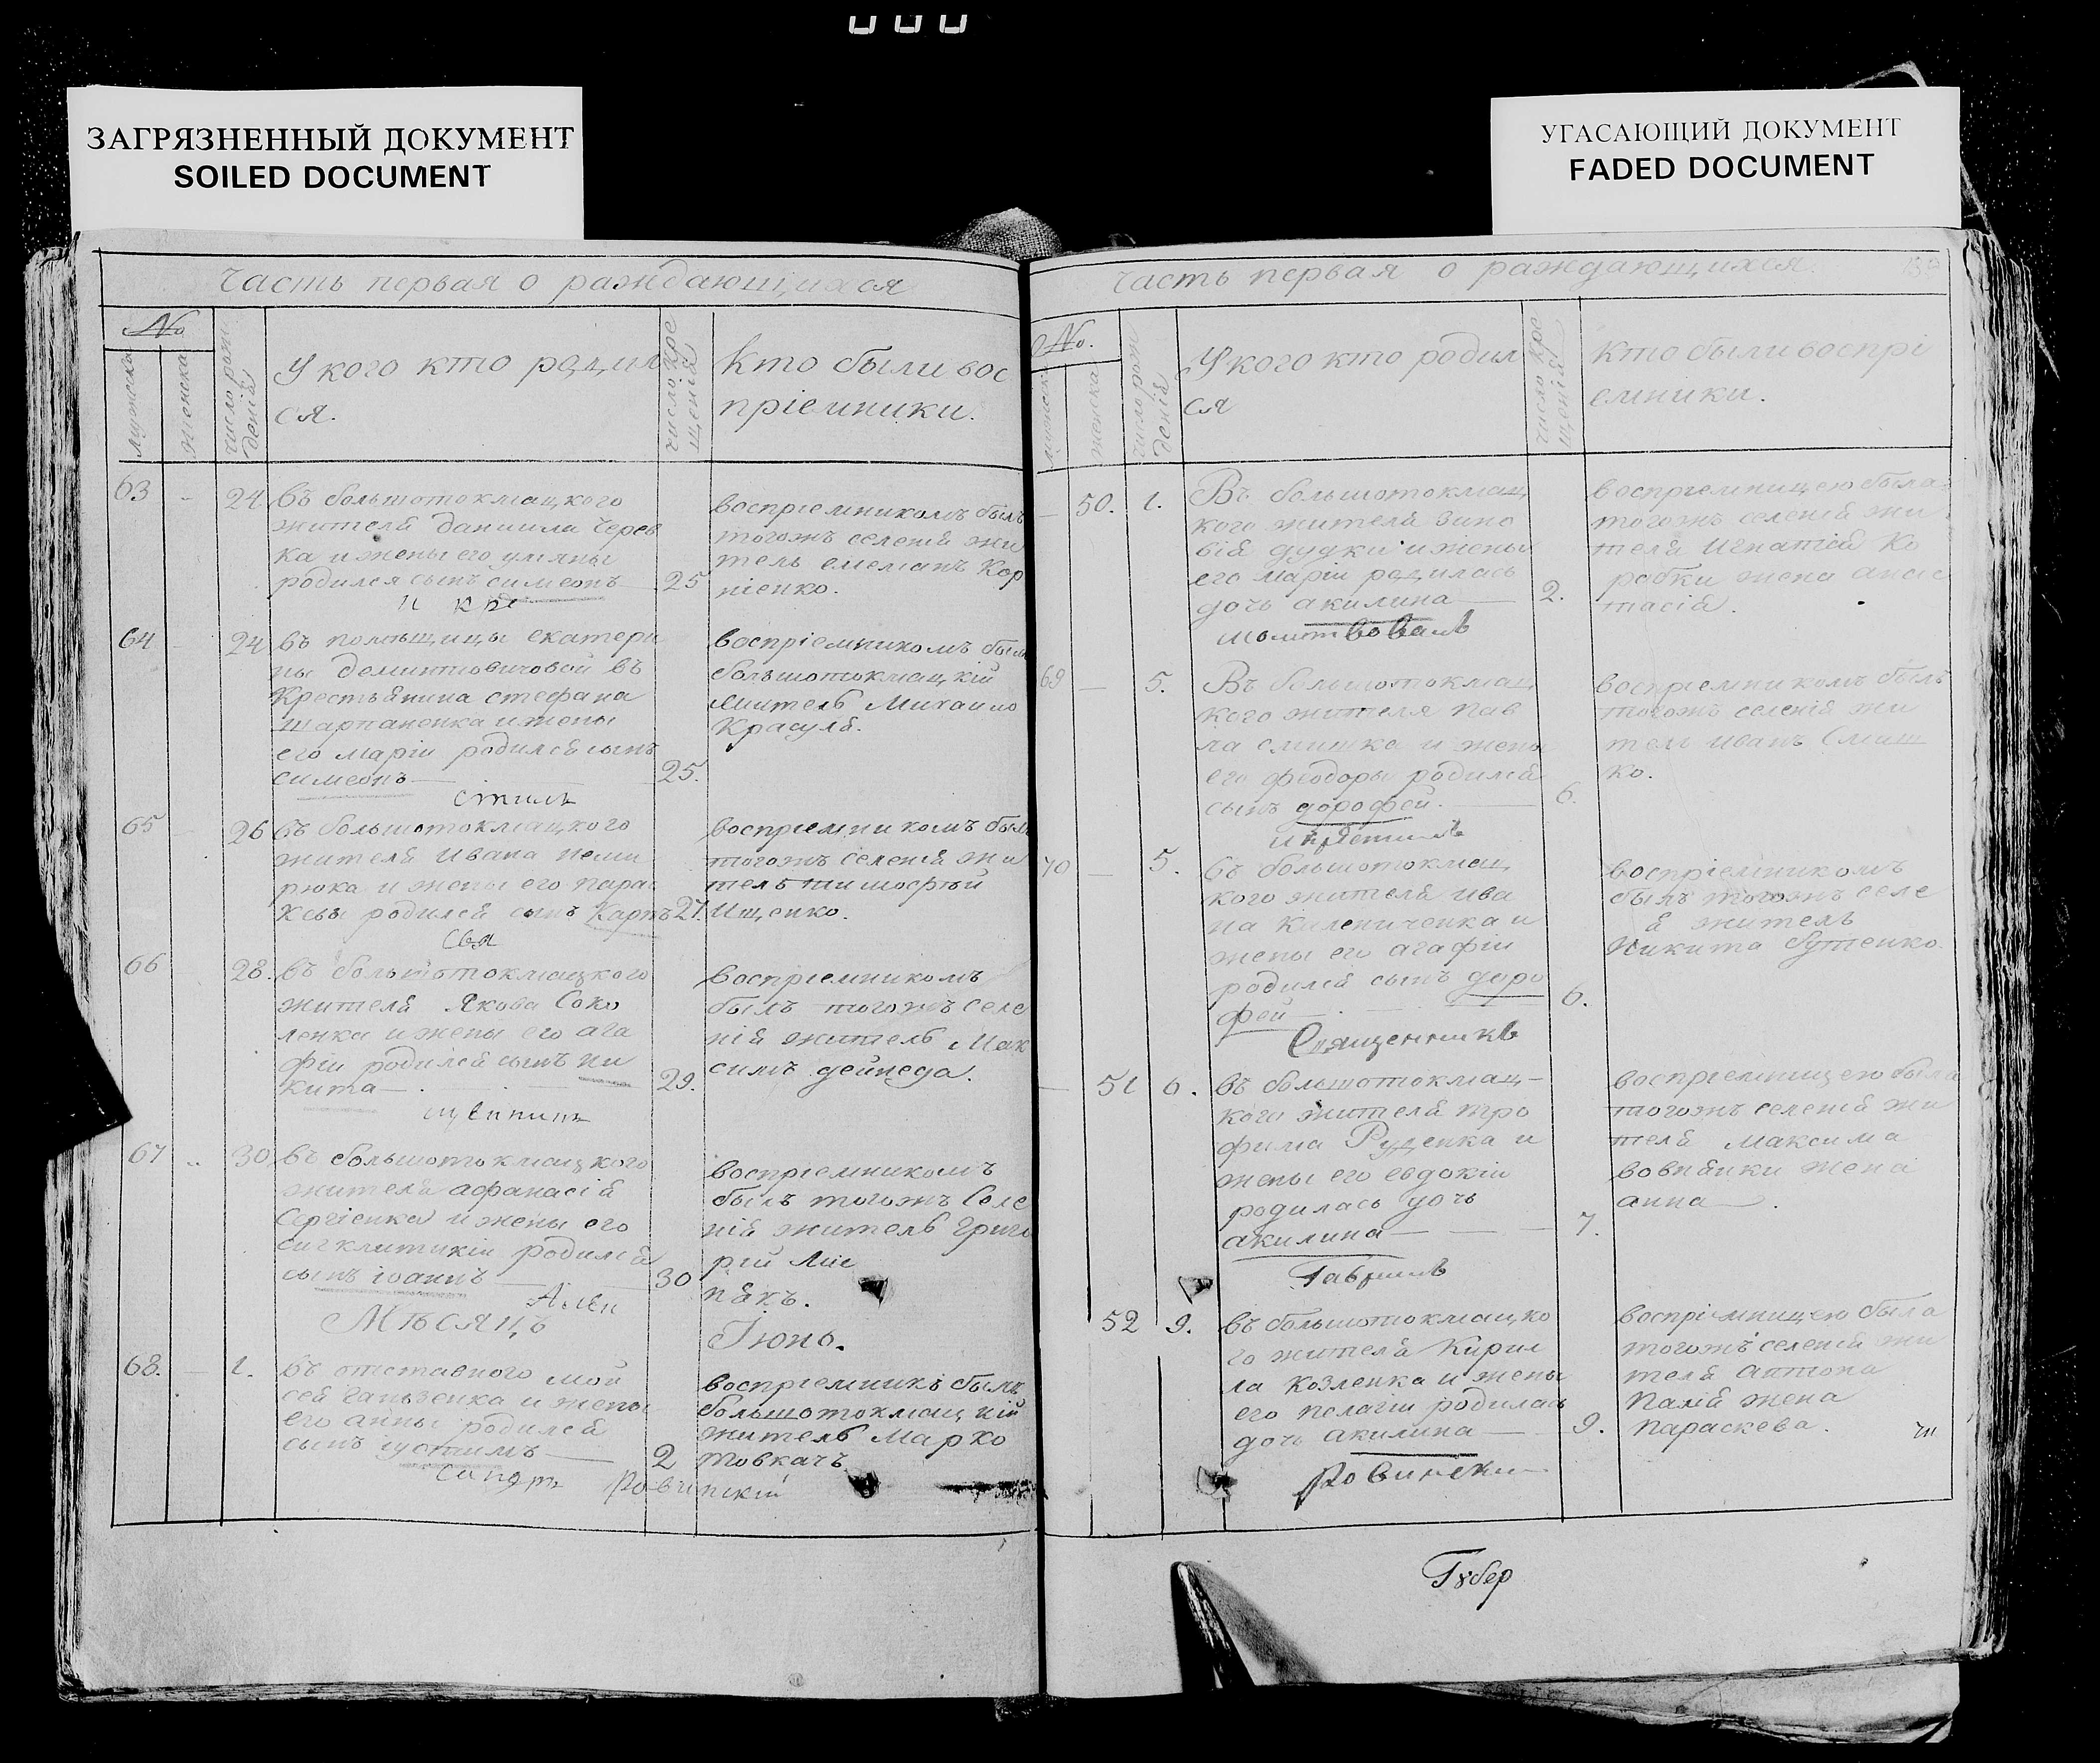 ЗАГРЯЗНЕННЫЙ ДОКУМЕНТ
SOILED DOCUMENT
УГАСАЮЩИЙ ДОКУМЕНТ
FADED DOCUMENT
Часть первая о раждающихся
№
мужеска
женска
число рож
денія
У кого кто родил
ся.
число кре
щенія
Кто были вос
пріемники.
63 24 въ большотокмацкого
жителя даниила Черев
ка и жены его улияны
родился сынъ симеонъ 25
и кре
воспріемникомъ былъ
тогожъ селенія жи
тель емелианъ Кор
ніенко.
64 24 въ помѣщицы екатери
ны
въ
Крестьянина стефана
Шарпаненка и жены
его маріи родился сынъ
симеонъ 25.
стилъ
воспріемникомъ былъ
большотокмацкій
житель Михаило
Красуля.
65 26 въ большотокмацкого
жителя Ивана неми
рюка и жены его парас
ксвы родился сынъ Карпъ 27.
Свя
воспріемникомъ былъ
тогожъ селенія жи
тель тимофѣй
Ищенко.
66 28. въ большотокмацкого
жителя Якова Соко
ленка и жены его ага
фіи родился сынъ ни
кита 29.
воспріемникомъ
былъ тогожъ селе
нія житель Мак
симъ дейнеда.
67 30 въ большотокмацкого
жителя афанасія
Сергіенка и жены его
синклитикіи родился
сынъ іоаннъ 30
воспріемникомъ
былъ тогожъ селе
нія житель Григо
рій
Мѣсяцъ Іюнь.
68. 1. въ отставного мой
сея и жены
его анны родился
сынъ іустинъ 2
Ровинскій
воспріемникъ былъ
большотокмацкій
житель Марко
товкачъ
Часть первая о раждающихся.
№.
женска
число рож
денія
У кого кто родил
ся
число кре
щенія
Кто были воспрі
емники.
50. 1. Въ большотокмац
кого жителя зино
вія дудки и жены
его маріи родилась
дочь акилина 2.
молитвовалъ
воспріемницею была
тогожъ селенія жи
теля Игнатія Ко
робки жена анас
тасія.
69 5. Въ большотокмац
кого жителя пав
ла смишка и жены
его феодоры родился
сынъ дорофей. 6.
и крестилъ
воспріемникомъ былъ
тогожъ селенія жи
тель иванъ Смиш
ко.
70 5. въ большотокмац
кого жителя ива
на и
жены его агафіи
родился сынъ доро
фей 6.
Священникъ
воспріемникомъ
былъ тогожъ селе
я житель
Никита бутенко.
51 6. въ большотокмац-
кого жителя тро
фима Руденка и
жены его евдокіи
родилась дочь
акилина 7.
Гавріилъ
воспріемницею была
тогожъ селенія жи
теля максима
жена
анна
52 9. въ большотокмацко
го жителя Кирил
ла козленка и жены
его пелагіи родилась
дочь акилина 9.
Ровински
воспріемницею была
тогожъ селенія жи
теля антона
Палія жена
параскева.
Губер